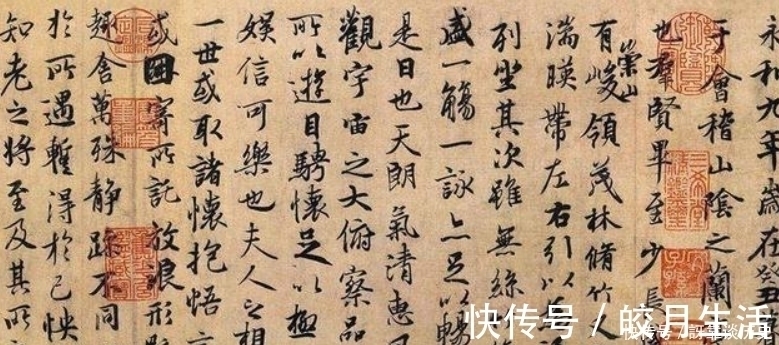 永和九年歲在癸丑
于會稽山陰之蘭
也羣賢畢至少長
有崇山峻領茂林脩竹
湍暎帶左右引以
列坐其次雖無絲
盛一觴一詠亦足以暢
是日也天朗氣清惠
觀宇宙之大俯察品
所以遊目騁懷足以極
娛信可樂也夫人之相
一世或取諸懷抱悟
或因寄所託放浪形
趣舍萬殊靜躁不同
於所遇暫得於己怏
知老之將至及其所
快传号 / 皎月生活